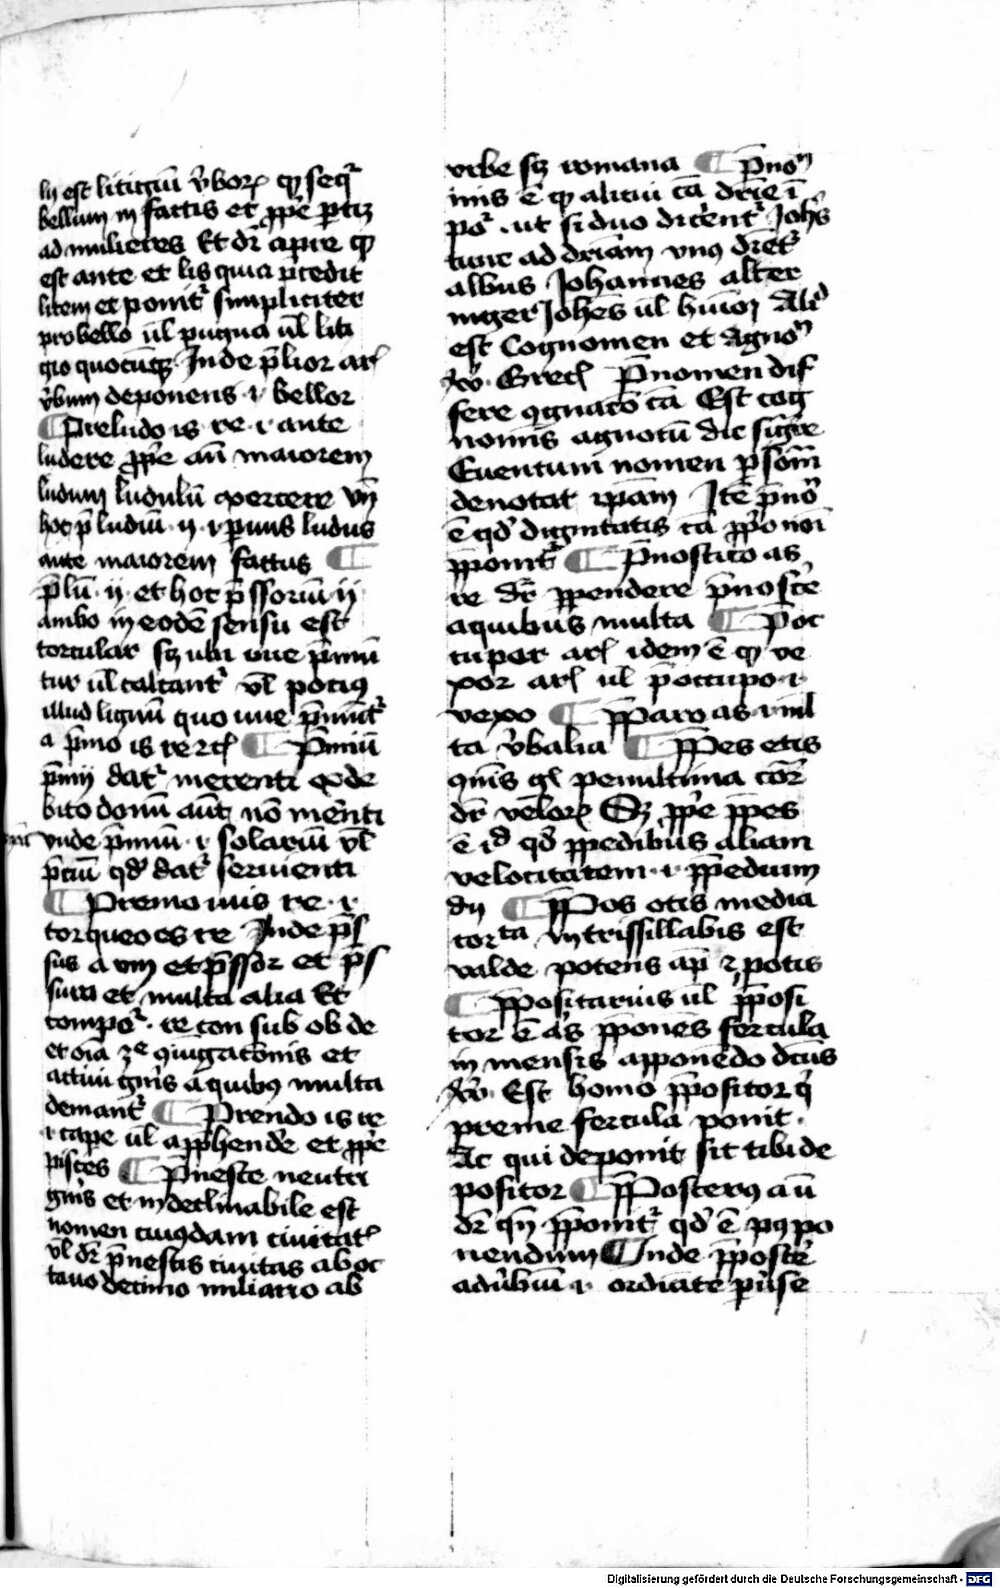 lij est litigiū v̄borꝝ qd̕ seqr̄
bellum in factis et ꝓpe ꝑtꝫ
ad mulieres Et dr̄ a pre qd̕
est ante et lis quia p̄cedit
litem et ponit᷑ simpliciter
pro bello ul̄ pugna ul̄ liti
gio quocūqꝫ Inde p̄lior arꝭ
v̄bum deponens ·i· bellor
¶ Preludo is re ·i· ante
ludere ꝓpe an̄ maiorem
ludum ludulū exercere Vn̄
hoc p̄ludiū ·ij· ·i· ꝑuus ludus
ante maiorem factus ¶
p̄lū ·ij· et hoc p̄ssoriū ij
ambo in eodē sensu est
torcular sꝫ ubi uue p̄mū
tur ul̄ calcant᷑ vl̄ pociꝰ
illud lignū quo uue p̄mūt᷑
a p̄mo is re ⁊cꝭ ¶ P̄miū
p̄mij dat᷑ merenti ex de
bito donū aūt nō merēti
vnde p̄miū ·i· solariū vl̄
p̄ciū qd̕ dat᷑ seruienti
¶ Premo mis re ·i·
torqueo es re Inde p̄s
sus a vm et p̄ssor et p̄s
sura et multa alia Et
compoꝛ᷑ · re con sub ob de
et oīa ⁊c̄ ꝯiugac̄onis et
actiui gn̄is a quibus multa
demant᷑ ¶ Prendo is re
·i· cape ul̄ apꝓhendēre et ꝓpe
pisces ¶ P̄neste neutri
gn̄is et indeclinabile est
nomen cuiusdam ciuitatꝭ
vl̄ dr̄ p̄nestis ciuitas ab oc
tauo decimo miliario ab
vrbe sꝫ romana ¶ P̄noꝫ
inis ē qd̕ alicui cā dr̄ie ī
poꝛ᷑ · ut si duo dicerent᷑ Joh̄s
tunc ad dr̄iam vnꝰ dr̄et᷑
albus Johannes alter
niger Joh̄es ul̄ hiꝰoꝛ Aliꝭ
est Cognomen et Agnoꝫ
v̄ꝰ · Grecꝭ P̄nomen dif
fere ꝯgnac̄o cā Est cog
nomīs agnotū dic sig̕re
Euentum nomen ꝑsonā
denotat ipām Itē p̄nō
ē qd̕ dignitatis cā ꝓpo noī
p̄ponit᷑ ¶ P̄nostico as
re dr̄ p̄pendere p̄noscē
a quibus multa ¶ P̄oc
cupor arꝭ idem ē qd̕ ve
xor arꝭ ul̄ p̄occupo ·i·
vexo ¶ P̄paro as ·i· mul
ta v̄balia ¶ P̄pes etis
om̄īs gꝭ penultima cor̄
dr̄ velorꝝ Sꝫ ꝓpe p̄pes
ē id qd̕ p̄pedibus aliam
velocitatem ·i· p̄pedium
dij ¶ P̄pos otis media
corta in trissillabis est
valde potens ap̄ ⁊ potis
¶ P̄positarius ul̄ p̄posi
tor ē as p̄ponēs fercula
in mensis apponēdo dc̄us
v̄ꝰ · Est homo p̄positor q̄
preme fercula ponit ·
Ac qui deponit sit tibi de
positor ¶ P̄posterꝰ a ū
dr̄ qn̄ p̄ponit᷑ qd̕ ē pꝰpo
nendum Inde p̄postere
adūbiū ·i· ordiate ꝑūse
Digitalisierung gefördert durch die Deutsche Forschungsgemeinschaft - DFG